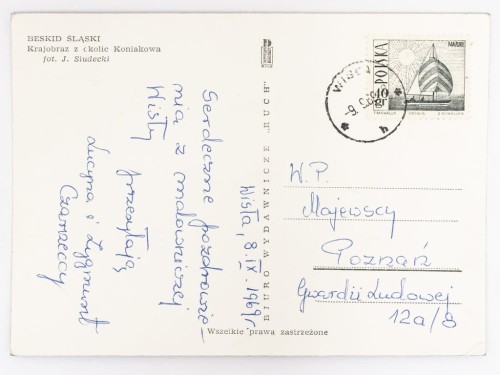 BESKID ŚLĄSKI
Krajobraz z okolic Koniakowa
fot. J. Siudecki
Wisła, 8.IX.1969r
Serdeczne pozdrowie-
nia z malowniczej
Wisły
przesyłają
Lucyna i Zygmunt
Czarneccy
BIURO WYDAWNICZE „RUCH”
Wszelkie prawa zastrzeżone
POLSKA
10 gr
W.P.
Majewscy
Poznań
Gwardii Ludowej
12a/8